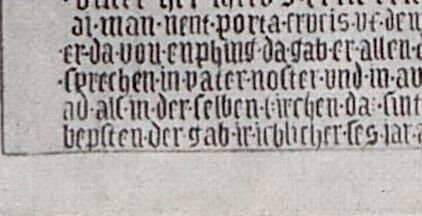 ai·man·nent·porta·crucis·
er·da·von·enphing·da·gab·er·allen·
·sprechen·in·pater·noster·und·in·au
ad·als·in·der·selben·kirchen·da·sint
bepsten·der·gab·ir·ichlicher·ses·iar·a